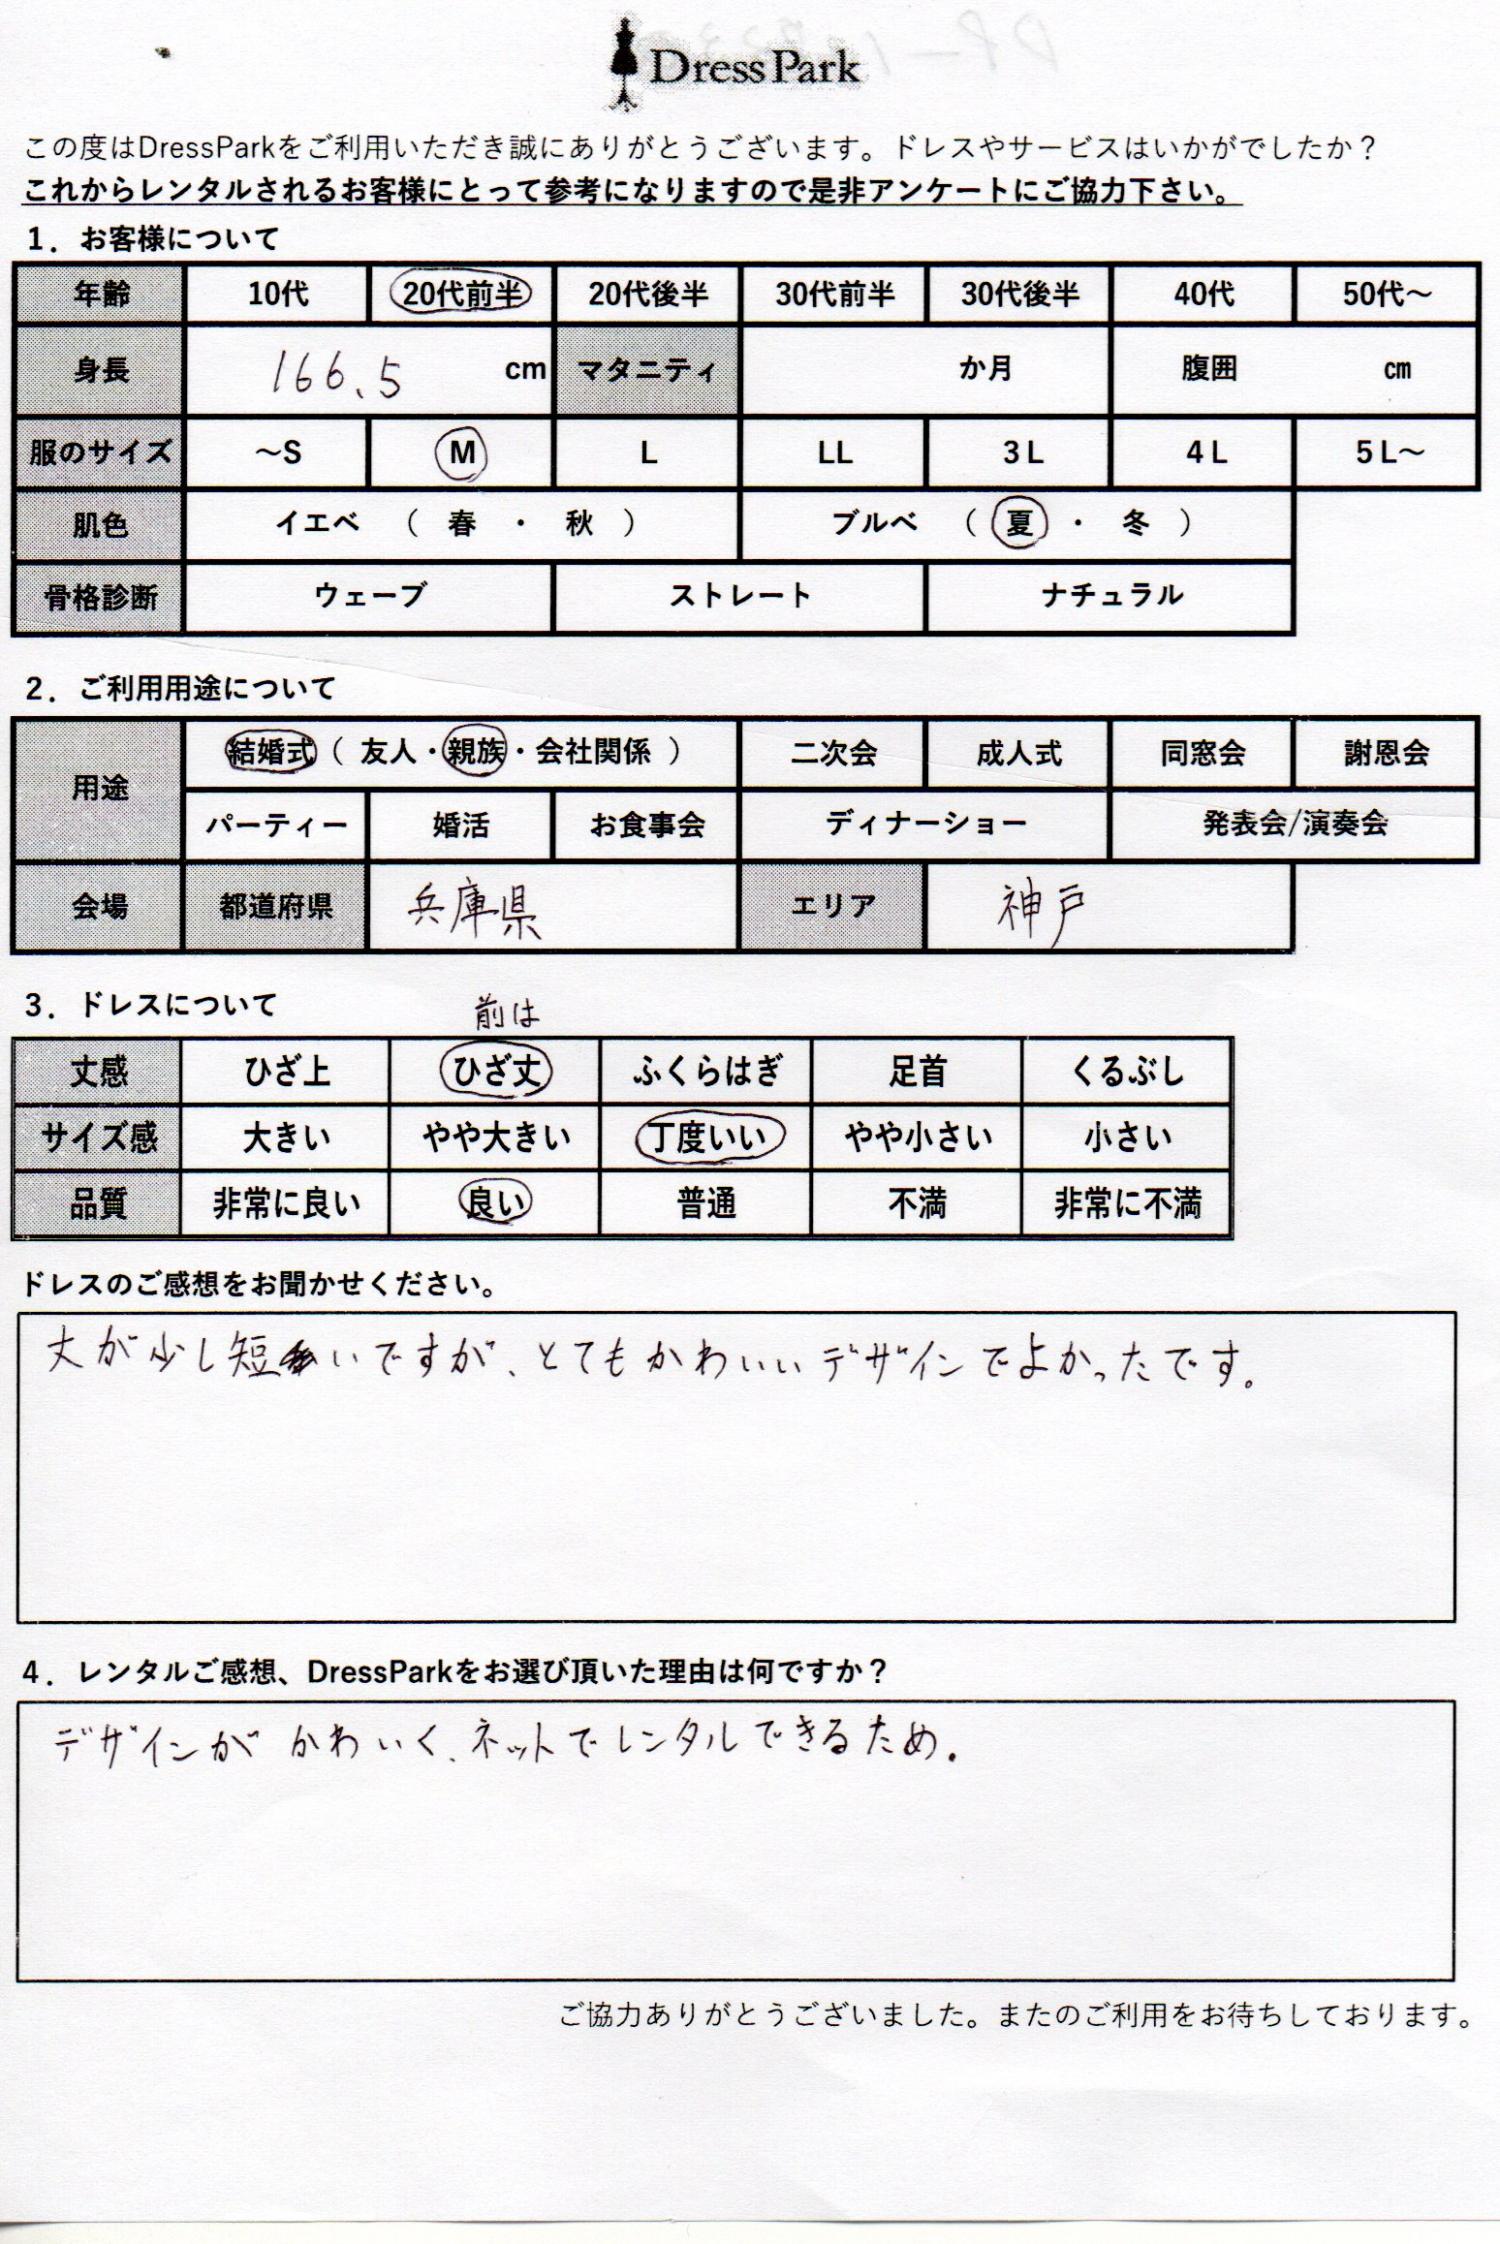 Dress Park
この度はDressParkをご利用いただき誠にありがとうございます。ドレスやサービスはいかがでしたか？
これからレンタルされるお客様にとって参考になりますので是非アンケートにご協力下さい。
1．お客様について
年齢 10代 20代前半 20代後半 30代前半 30代後半 40代 50代～
身長 166.5 cm マタニティ か月 腹囲 ㎝
服のサイズ ～S M L LL 3L 4L 5L～
肌色 イエベ （ 春 ・ 秋 ） ブルベ （ 夏 ・ 冬 ）
骨格診断 ウェーブ ストレート ナチュラル
2．ご利用用途について
用途 結婚式（ 友人・親族・会社関係 ） 二次会 成人式 同窓会 謝恩会
パーティー 婚活 お食事会 ディナーショー 発表会/演奏会
会場 都道府県 兵庫県 エリア 神戸
3．ドレスについて 前は
丈感 ひざ上 ひざ丈 ふくらはぎ 足首 くるぶし
サイズ感 大きい やや大きい 丁度いい やや小さい 小さい
品質 非常に良い 良い 普通 不満 非常に不満
ドレスのご感想をお聞かせください。
丈が少し短いですが、とてもかわいいデザインでよかったです。
4．レンタルご感想、DressParkをお選び頂いた理由は何ですか？
デザインがかわいく、ネットでレンタルできるため。
ご協力ありがとうございました。またのご利用をお待ちしております。